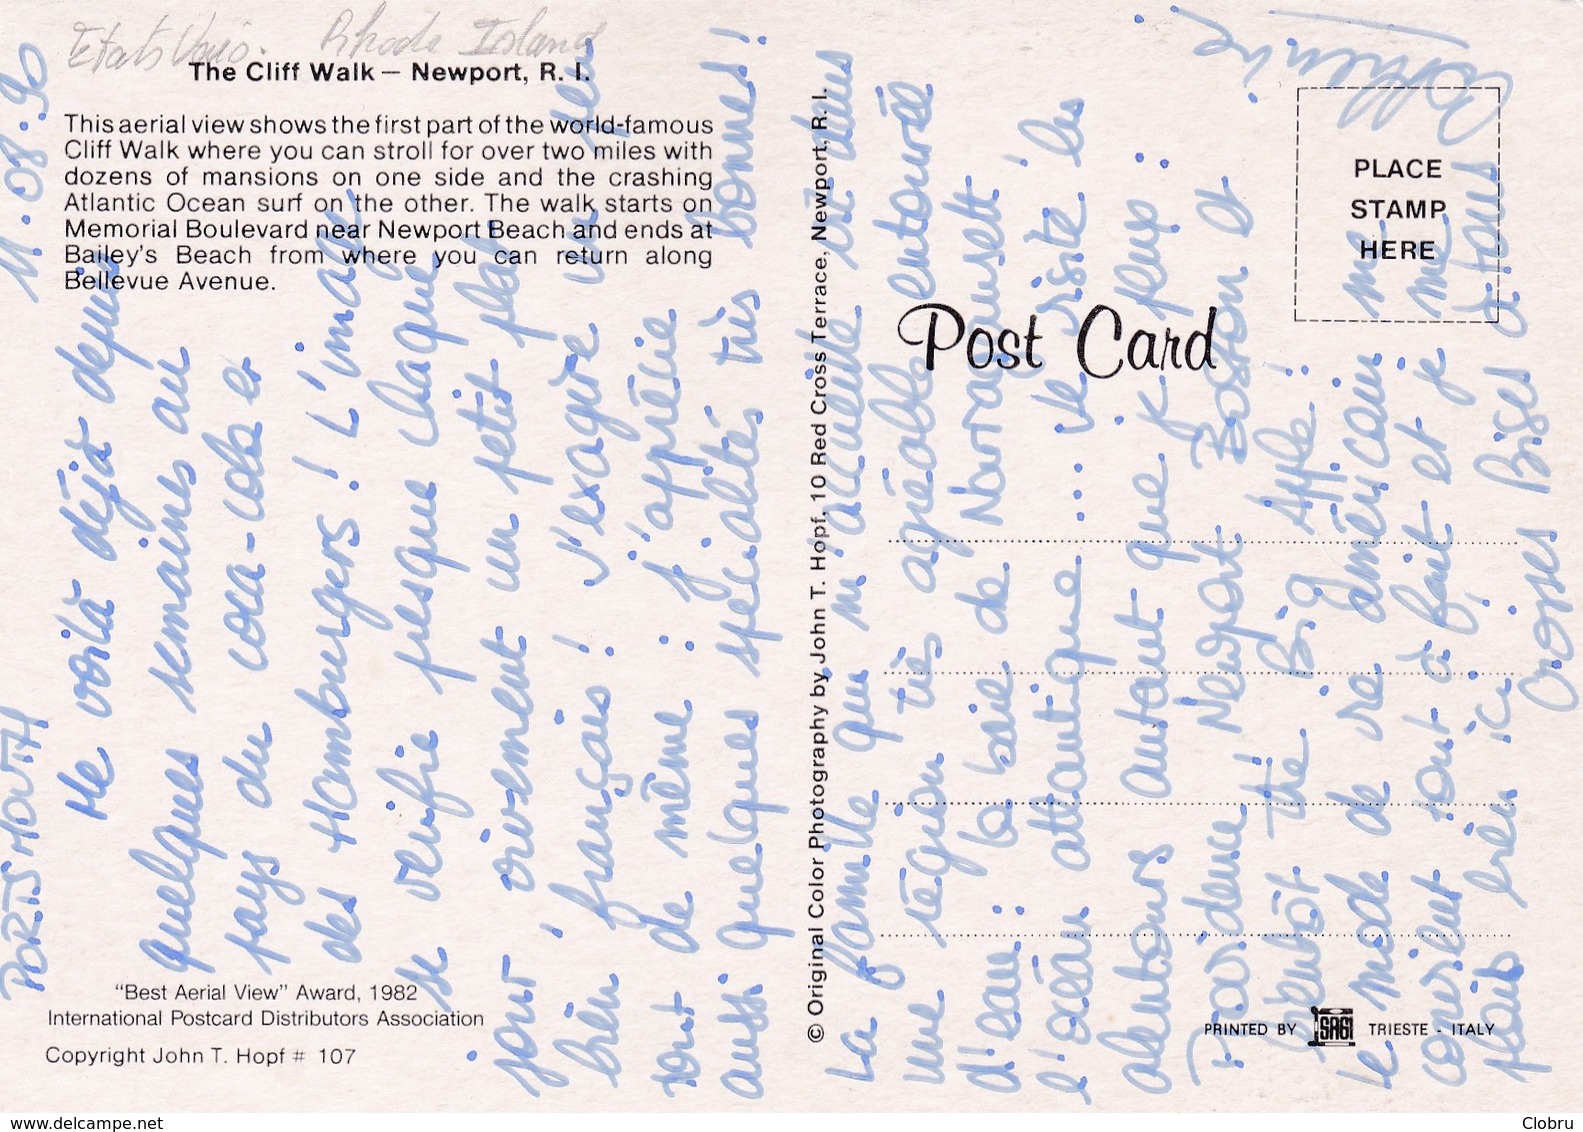 Etats Unis. Rhode Island
The Cliff Walk — Newport, R. I.
This aerial view shows the first part of the world-famous
Cliff Walk where you can stroll for over two miles with
dozens of mansions on one side and the crashing
Atlantic Ocean surf on the other. The walk starts on
Memorial Boulevard near Newport Beach and ends at
Bailey's Beach from where you can return along
Bellevue Avenue.
"Best Aerial View" Award, 1982
International Postcard Distributors Association
Copyright John T. Hopf # 107
PORTSMOUTH 11.08.90
Me voilà déjà depuis
quelques semaines au
pays du coca-cola et
des Hamburgers ! L'image
se vérifie presque chaque
jour, vivement un petit plat
bien français ! J'exagère un peu
tout de même : j'apprécie
aussi quelques spécialités très bonnes !
© Original Color Photography by John T. Hopf, 10 Red Cross Terrace, Newport, R. I.
La famille qui m'accueille vit dans
une région très agréable entourée
d'eau : la baie de Narragansett
l'océan atlantique... Je visite les
alentours autant que je peux :
Providence Newport Boston et
bientôt the Big Apple !
Le mode de vie américain me
convient tout à fait et je me
plais bien ici. Bises à tous
Grosses Bises
Post Card
PLACE
STAMP
HERE
PRINTED BY SAGI TRIESTE - ITALY
www.delcampe.net
Clobru